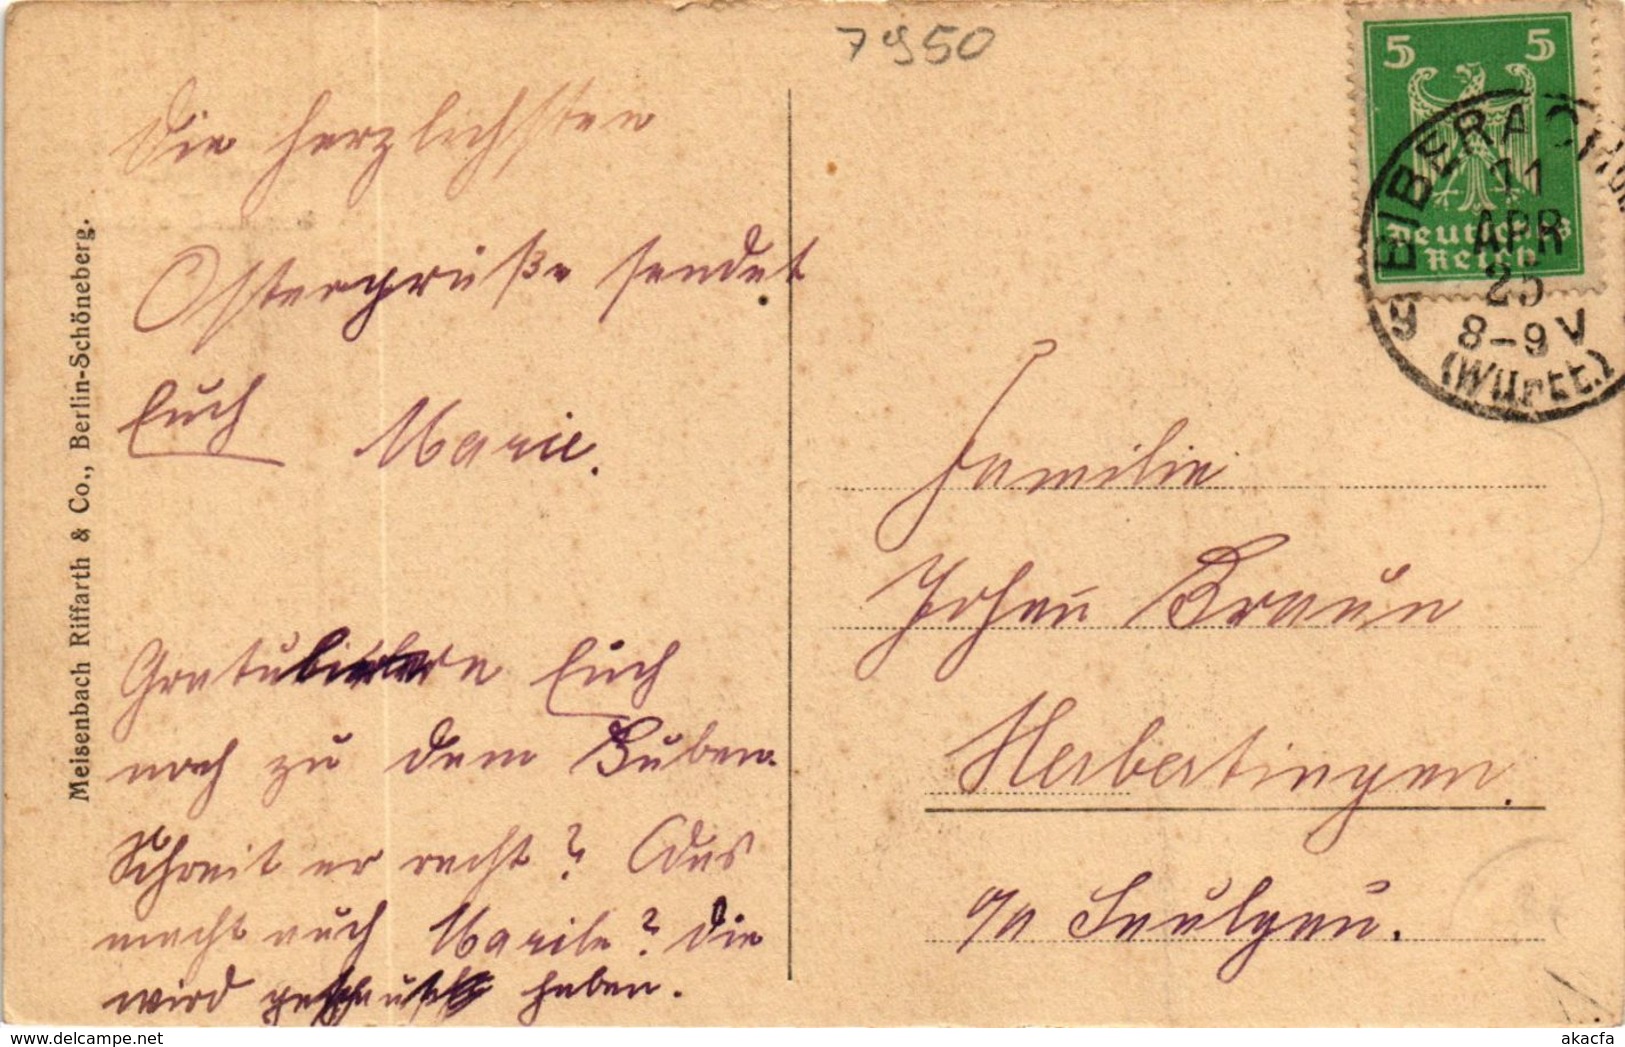 7950
Die herzlichsten
Ostergrüße sendet
Euch Marie.
Gratuliere Euch
noch zu dem Buben.
Schreit er recht? Was
macht auch Marile? Die
wird geschaut haben.
Meisenbach Riffarth & Co., Berlin-Schöneberg.
5 5
Deutsches
Reich
BIBERACH
11
APR
25
8-9 V
(Württ.)
Familie
Johan Braun
Herbertingen.
o/a Saulgau.
akacfa